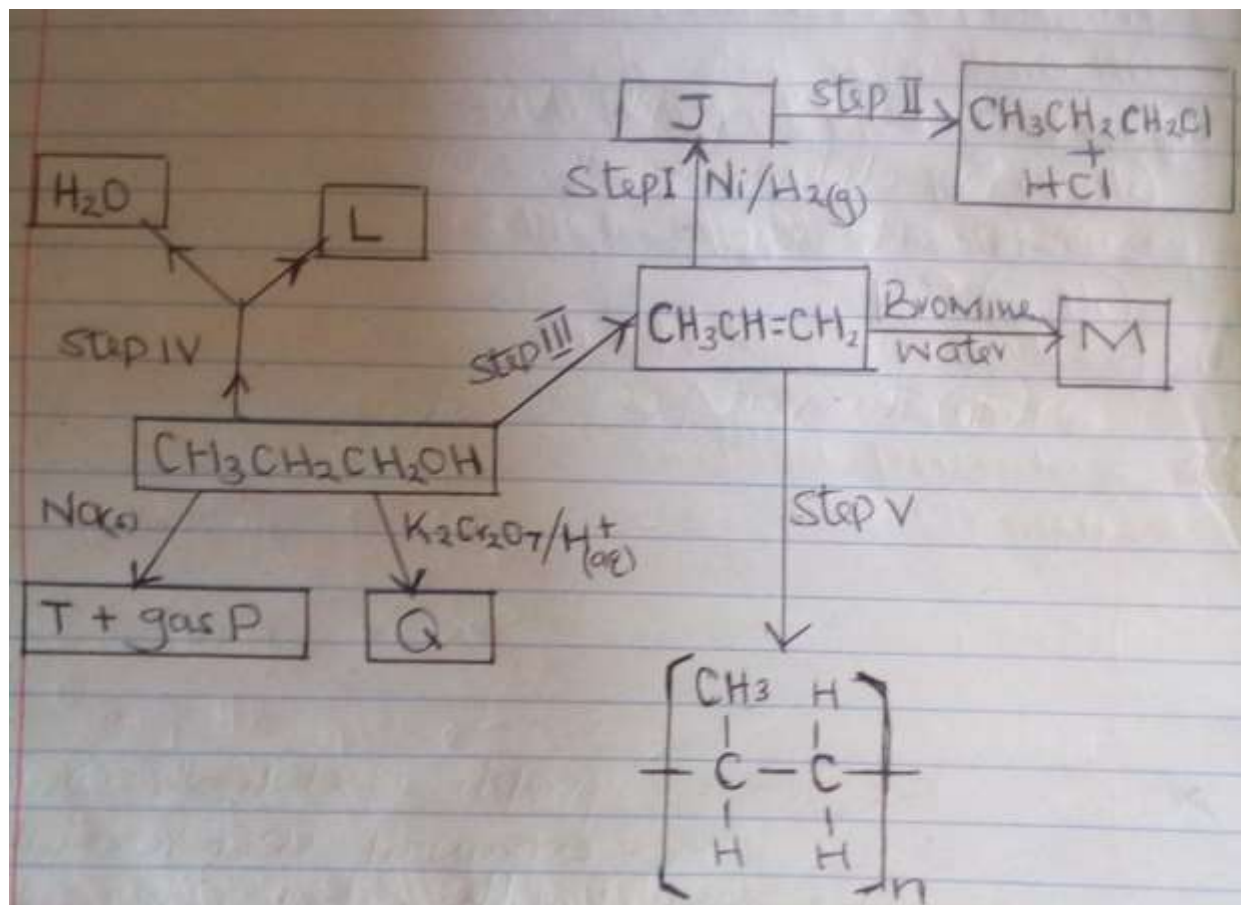 J
Step II
CH3CH2CH2Cl
+
HCl
Step I
Ni/H2(g)
H2O
L
Step IV
Step III
CH3CH=CH2
Bromine
water
M
CH3CH2CH2OH
Na(s)
K2Cr2O7/H+(aq)
Step V
T + gas P
Q
CH3 H
C - C
H H
n